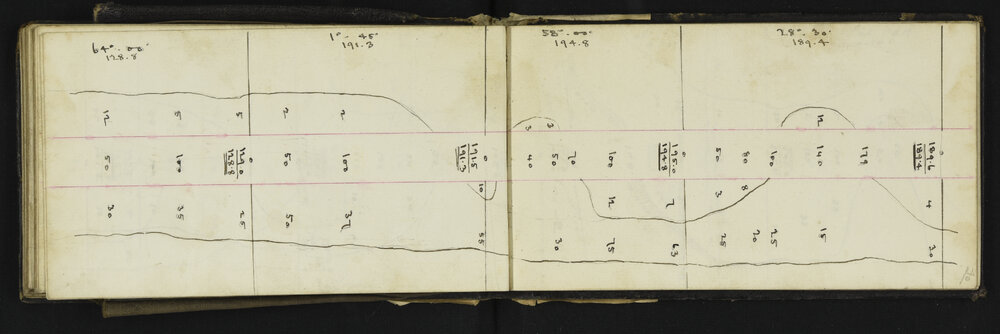 64°.00'
128.8
1°.45'
191.3
55°.00'
194.8
28°.30'
189.4
12
5
5
2
2
3
3
12
50
100
129.0
128.8
0
50
100
191.5
191.3
0
40
50
70
100
195.0
194.8
0
50
80
100
140
179
189.6
189.4
0
10
12
7
3
8
4
30
35
25
50
37
55
30
75
63
25
20
25
15
30